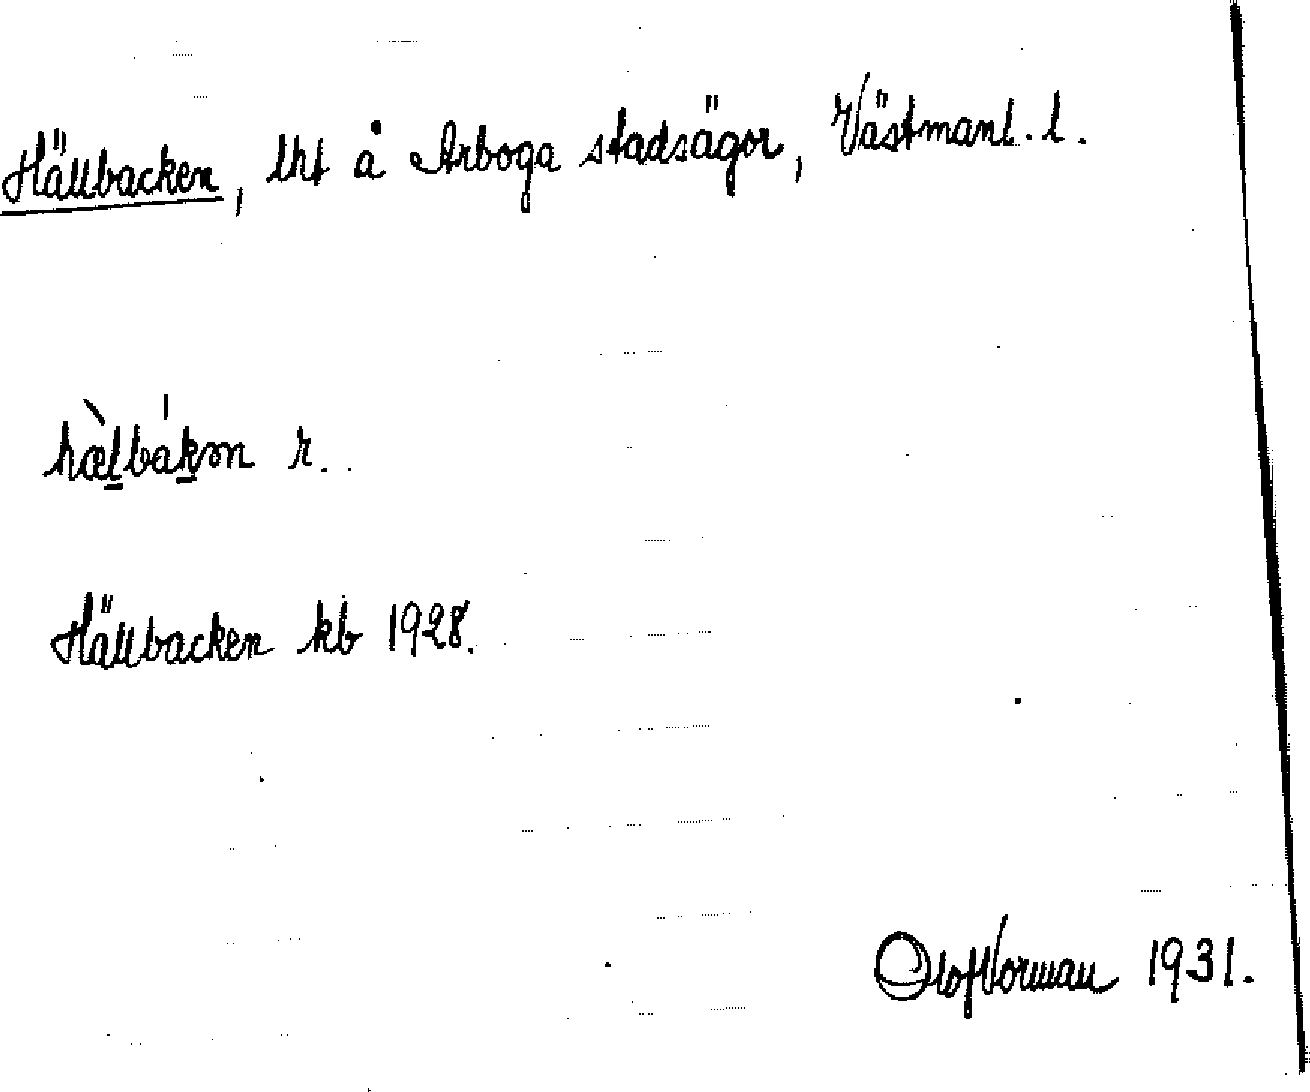 Hällbacken, lht å Arboga stadsägor, Västmanl. l.
hæ̀lbákən r.
Hällbacken kb 1928.
Olof Norman 1931.